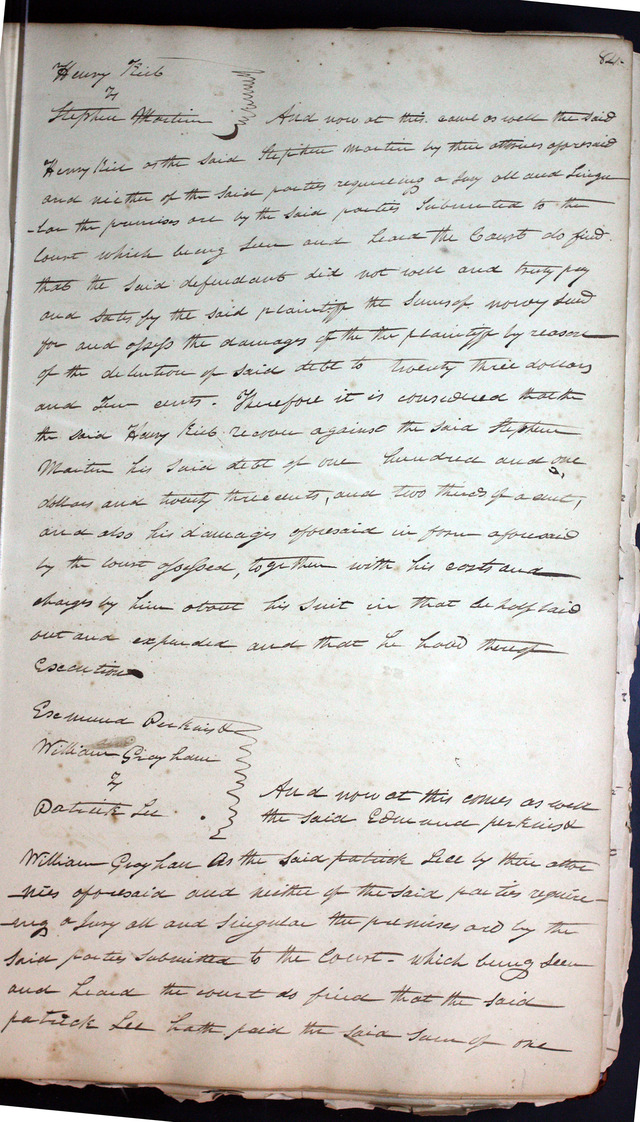 84.
Henry Kieb
v
Stephen Martin And now at this. came as well the said
Henry Kieb as the said Stephen Martin by their attornies aforesaid
and neither of the said parties requireing a Jury all and Singu
-lar the premises are by the said parties Submitted to the
Court which being Seen and heard the Court do find
that the said defendant did not well and truly pay
and Satisfy the said plaintiff the Sums of money Sued
for and assess the damages of the the plaintiff by reason
of the detention of said debt to twenty three dollars
and Ten cents. Therefore it is considered that the
the said Henry Kieb recover against the said Stephen
Martin his said debt of one hundred and one
dollars and twenty three cents, and two thirds of a cent,
and also his damages aforesaid in form aforesaid
by the court assessed, together with his costs and
charges by him about his Suit in that behalf laid
out and expended and that he have thereof
Execution
Esemund Perkins &
William Grayham
v
Patrick Lee And now at this comes as well
the said Edmund perkins &
William Grayham As the said patrick Lee by their attor
-nies aforesaid and neither of the said parties require-
-eng a Jury all and Singular the premises are by the
said parties Submitted to the Court - which being Seen
and heard the court do find that the said
patrick Lee hath paid the said Sum of one